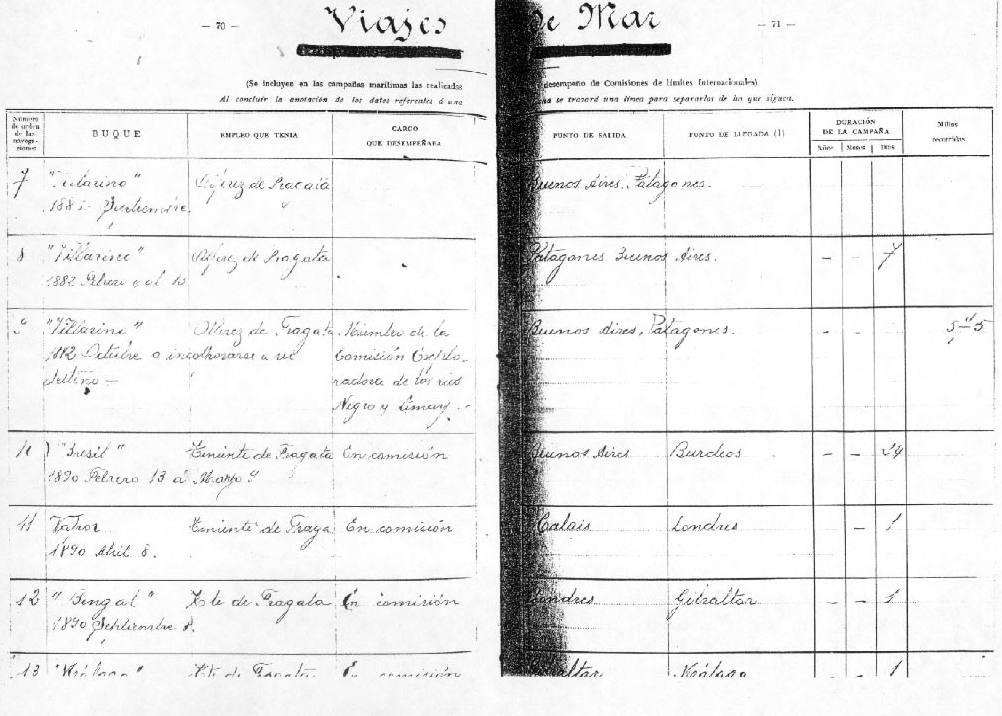 — 70 —
Viajes de Mar
— 71 —
(Se incluyen en las campañas marítimas las realizadas desempeño de Comisiones de límites Internacionales)
Al concluir la anotación de los datos referentes á una se trazará una línea para separarlos de ha que siguea.
Número de orden de las navega-ciones
BUQUE
EMPLEO QUE TENIA
CARGO QUE DESEMPEÑABA
PUNTO DE SALIDA
PUNTO DE LLEGADA (1)
DURACIÓN DE LA CAMPAÑA
Años Meses Dias
Millas recorridas
7 Alferez de Buenos Aires, Patagones.
8 "Villarino" Alferez de Fragata Patagones Buenos Aires. - - 7
1882 Febrero
9 "Villarino" Alferez de Fragata Miembro de la Buenos Aires, Patagones. - -
1882 Octubre Comisión Explo-
destino — radora de los rios
Negro y Limay.-
"Bresil" Teniente de Fragata En comisión Buenos Aires Burdeos - - 24
1890 Febrero 13 á Marzo 9
11 Teniente de Fraga En comisión Calais Londres - 1
1890 Abril 8.
12 "Bengal" Tte de Fragata En comisión Londres Gibraltar - - 1
1890 Septiembre 8.
13 "Málaga" Tte de Fragata En comisión Gibraltar Málaga - - 1